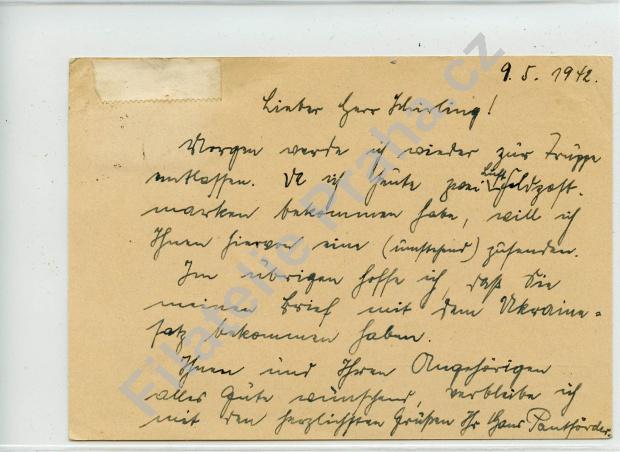 9. 5. 1942.
Lieber Herr
Morgen werde ich wieder zur Truppe
entlassen. Da ich heute zwei Luftfeldpost-
marken bekommen habe, will ich
Ihnen hiervon eine (umstehend) zusenden.
Im übrigen hoffe ich, daß Sie
meinen Brief mit dem Ukraine-
satz bekommen haben.
Ihnen und Ihren Angehörigen
alles Gute wünschend, verbleibe ich
mit den herzlichsten Grüßen Ihr Hans
Filatelie Praha.cz